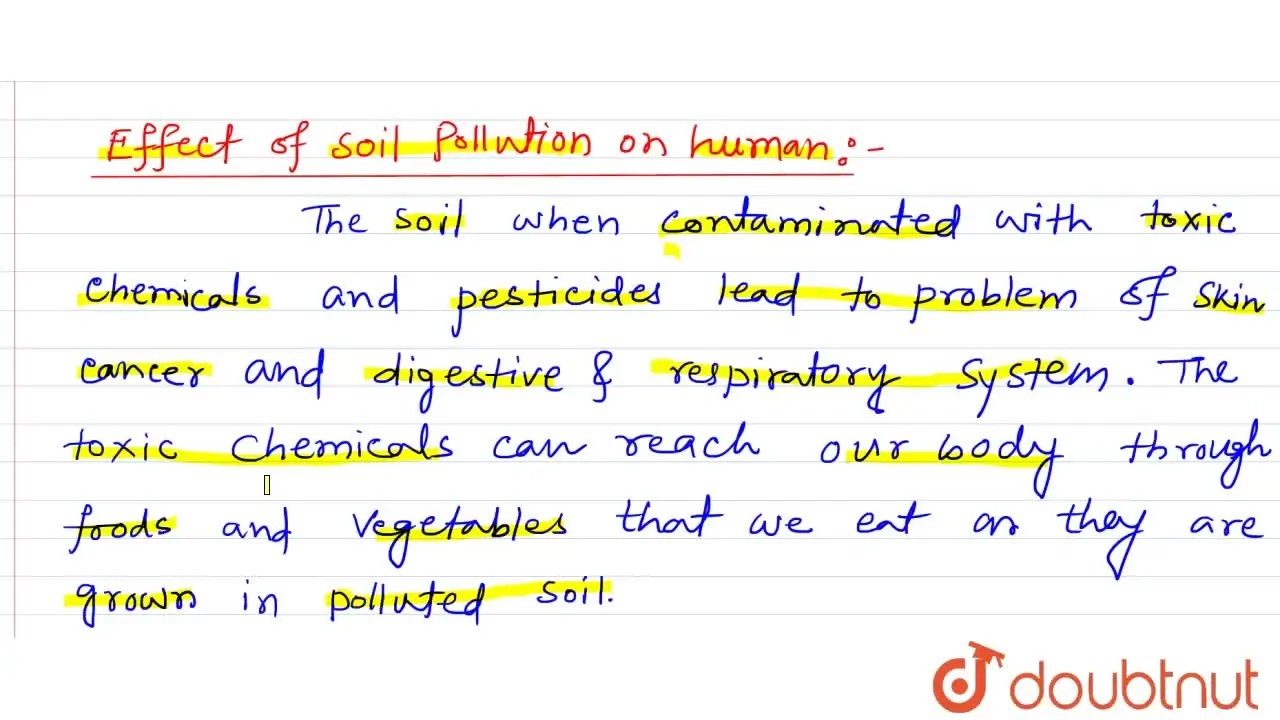 Effect of soil Pollution on human:-
The soil when contaminated with toxic
chemicals and pesticides lead to problem of skin
cancer and digestive & respiratory system. The
toxic chemicals can reach our body through
foods and vegetables that we eat as they are
grown in polluted soil.
doubtnut